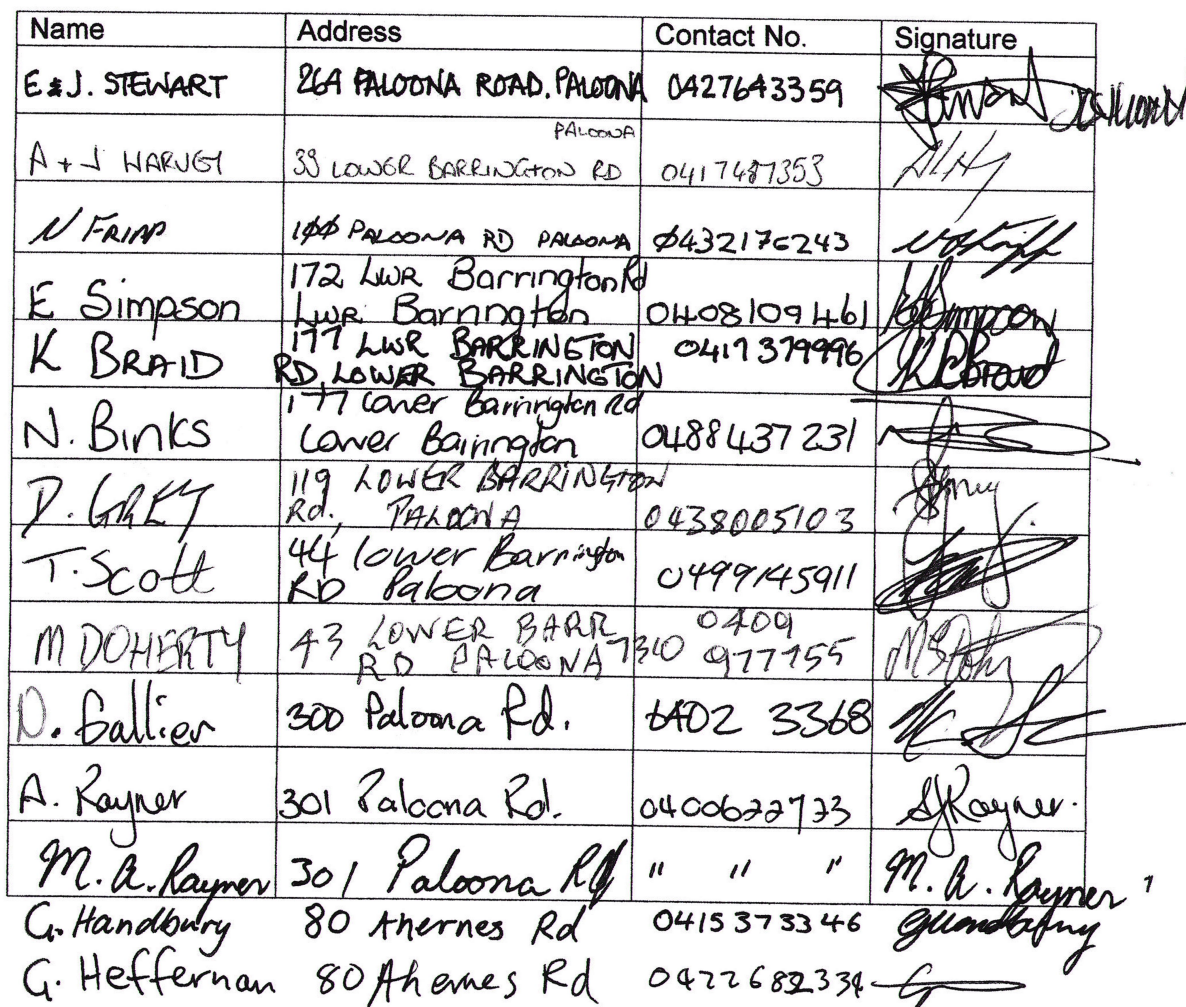 Name Address Contact No. Signature
E & J. STEWART 264 PALOONA ROAD, PALOONA 0427643359
PALOONA
A + J HARVEY 33 LOWER BARRINGTON RD 0417487353
N FRIPP 100 PALOONA RD PALOONA 0432176243
172 LWR Barrington Rd
E Simpson Lwr Barrington 0408109461 Simpson
177 LWR BARRINGTON
K BRAID RD, LOWER BARRINGTON 0417379996 K Braid
177 Lower Barrington Rd
N. Binks Lower Barrington 0488437231
119 LOWER BARRINGTON
D. GREY Rd, PALOONA 0438005103
44 lower Barrington
T. Scott RD Paloona 0499145911
43 LOWER BARR 0409
M DOHERTY RD PALOONA 7310 977755
D. Gallier 300 Paloona Rd. 6402 3368
A. Rayner 301 Paloona Rd. 0400622723 Rayner.
M. A. Rayner 301 Paloona Rd " " " M. A. Rayner
G. Handbury 80 Ahernes Rd 0415373346
G. Heffernan 80 Ahernes Rd 0422682334